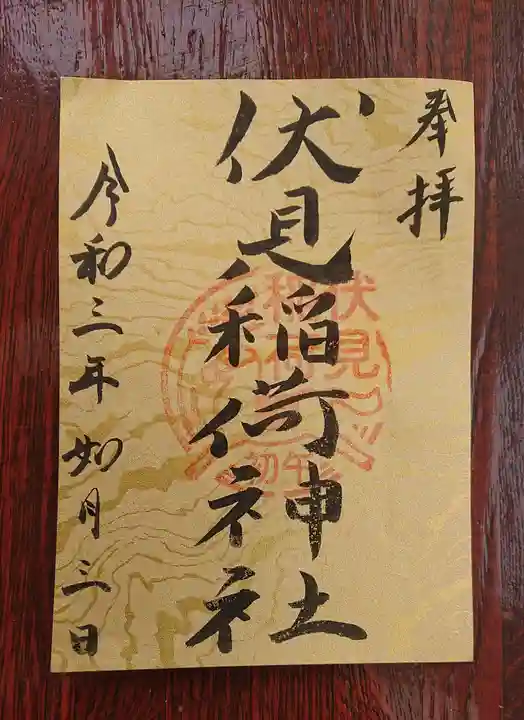 奉拝
伏見稲荷神社
令和三年如月三日
伏見稲荷
初午